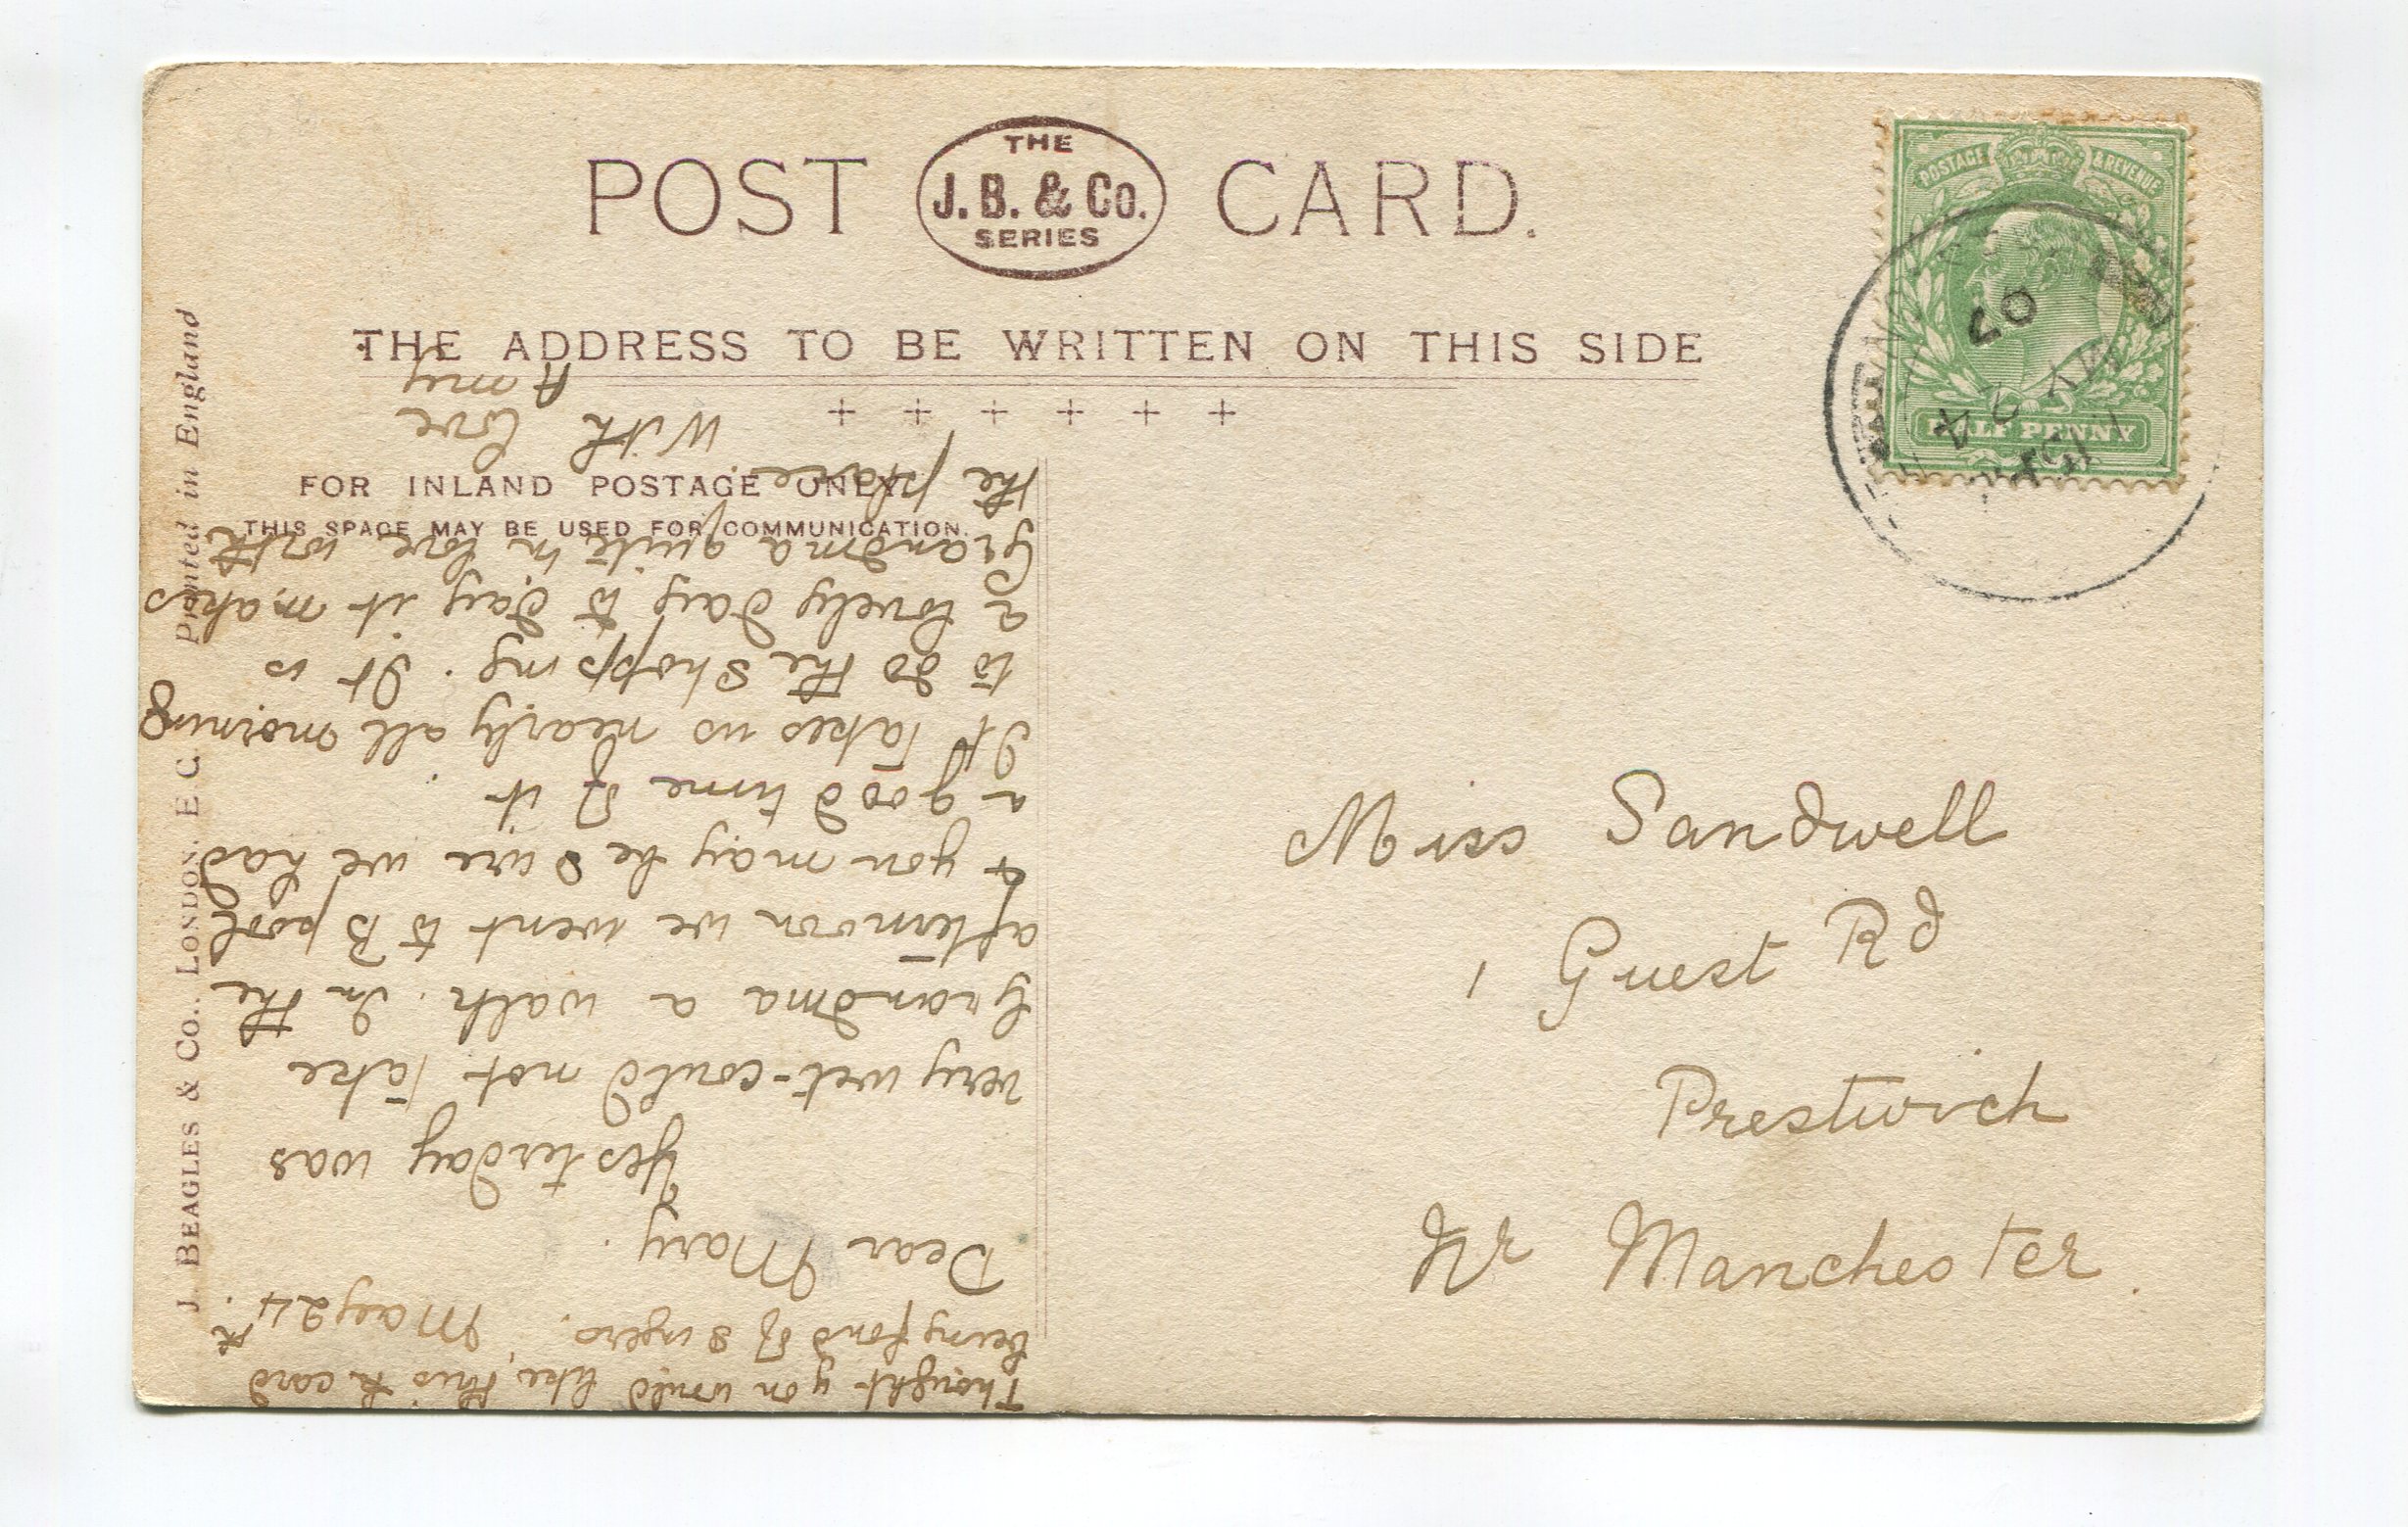 POST THE J.B. & Co. SERIES CARD.
THE ADDRESS TO BE WRITTEN ON THIS SIDE
FOR INLAND POSTAGE ONLY.
THIS SPACE MAY BE USED FOR COMMUNICATION.
J. BEAGLES & Co., LONDON, E.C. Printed in England
POSTAGE & REVENUE
HALF PENNY
MY 24
07
Miss Sandwell
1 Guest Rd
Prestwich
Nr Manchester.
Thought you would like this card
being fond of Singers. May 24th.
Dear Mary.
Yesterday was
very wet - could not take
Grandma a walk. In the
afternoon we went to B'pool
& you may be sure we had
a good time of it.
It takes us nearly all morning
to do the shopping. It is
a lovely day to day it makes
Grandma quite in love with
the place.
With love
Amy